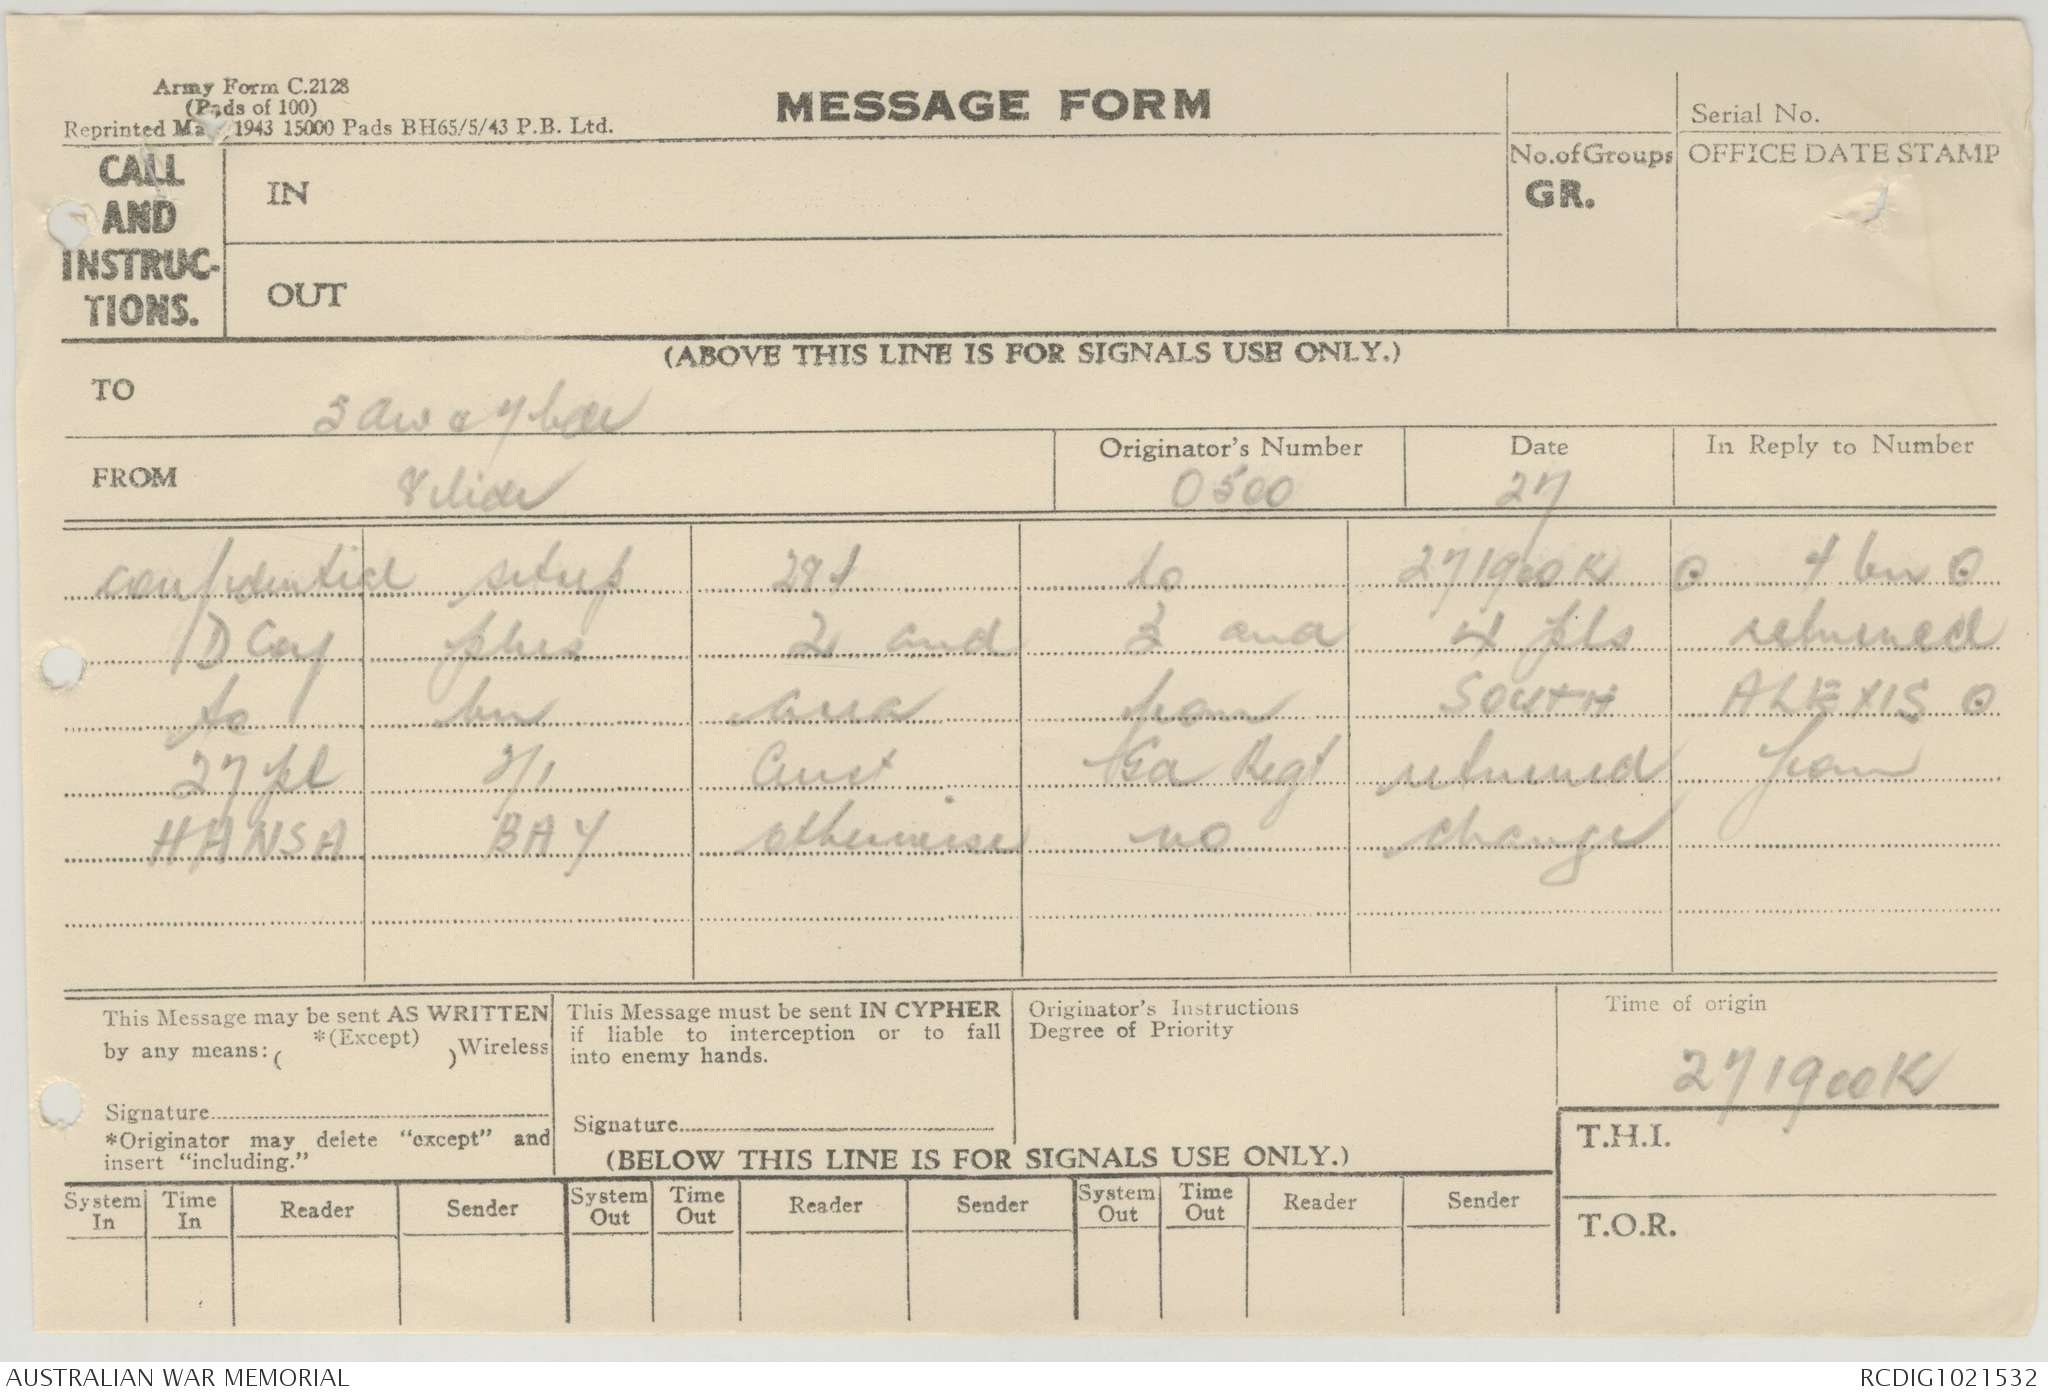 Army Form C.2128
(Pads of 100)
Reprinted May 1943 15000 Pads BH65/5/43 P.B. Ltd.
MESSAGE FORM
Serial No.
CALL AND INSTRUC-TIONS.
IN
No.ofGroups
GR.
OFFICE DATE STAMP
OUT
(ABOVE THIS LINE IS FOR SIGNALS USE ONLY.)
TO
FROM
Originator's Number
0500
Date
27
In Reply to Number
confidential sitrep 284 to 271900K ⊙ 4 bn ⊙
D Coy plus 2 and 3 and 4 pls returned
to bn area from SOUTH ALEXIS ⊙
27 pl 2/1 Aust Gd Regt returned from
HANSA BAY otherwise no change
This Message may be sent AS WRITTEN
by any means: ( *(Except) ) Wireless
Signature
*Originator may delete "except" and
insert "including."
This Message must be sent IN CYPHER
if liable to interception or to fall
into enemy hands.
Signature
Originator's Instructions
Degree of Priority
Time of origin
271900K
T.H.I.
T.O.R.
(BELOW THIS LINE IS FOR SIGNALS USE ONLY.)
System In
Time In
Reader
Sender
System Out
Time Out
Reader
Sender
System Out
Time Out
Reader
Sender
AUSTRALIAN WAR MEMORIAL
RCDIG1021532